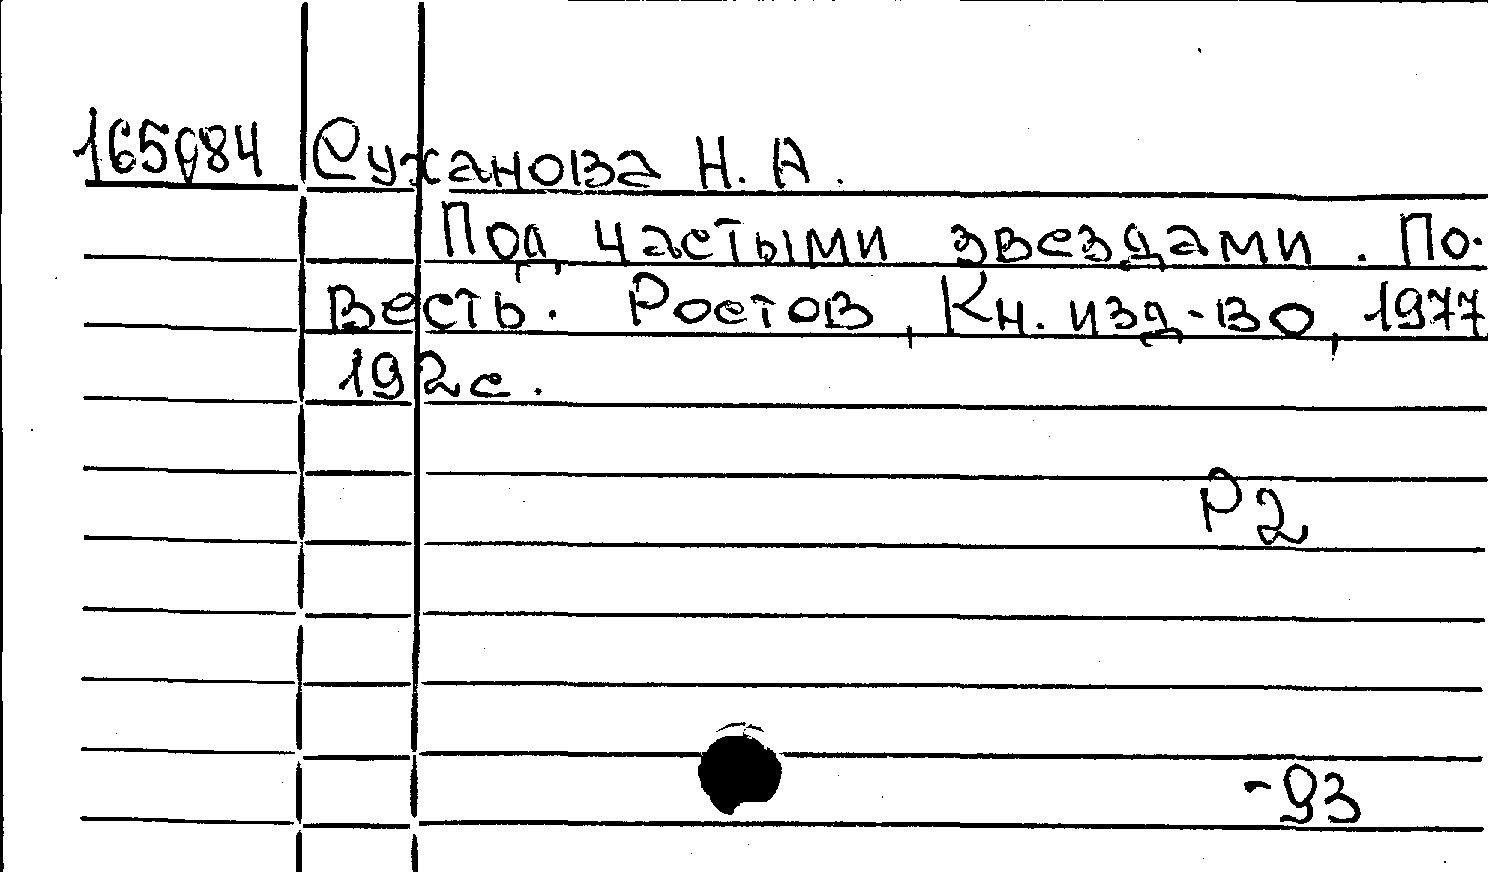 165084 Суханова Н. А.
Под частыми звездами. По-
весть. Ростов, Кн. изд-во, 1977
192с.
Р2
-93